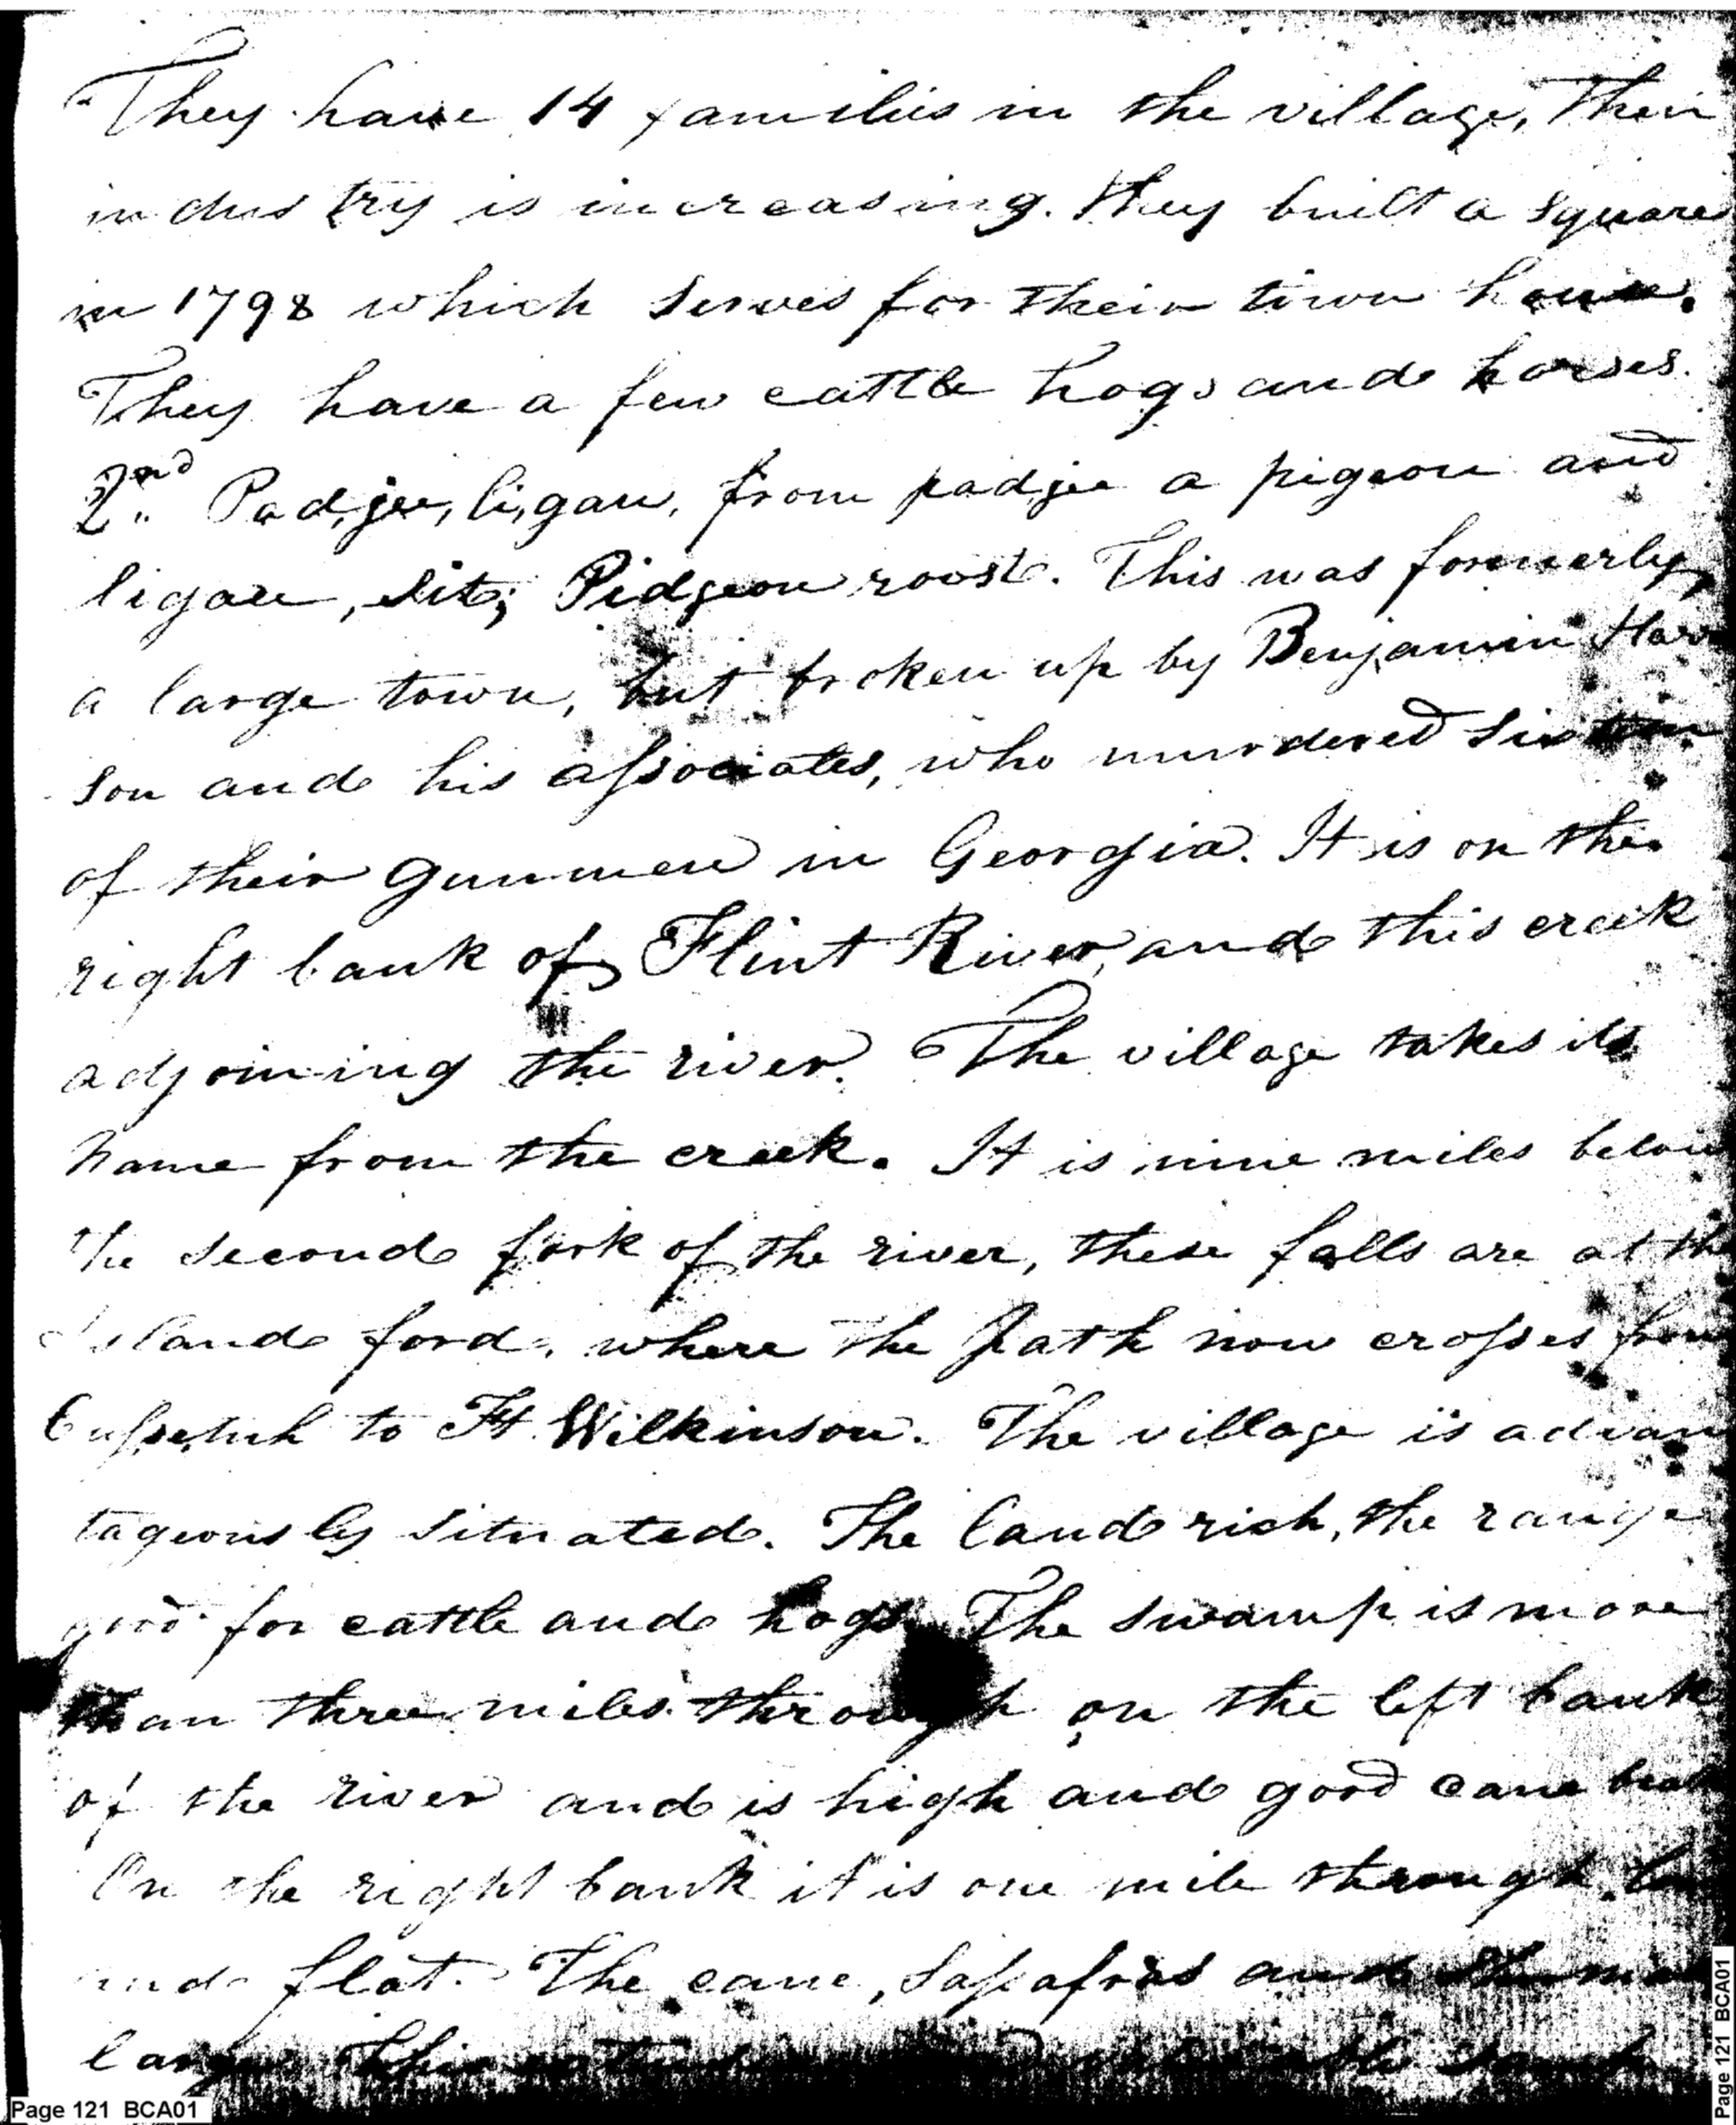 They have 14 families in the village, Their
industry is increasing. They built a square
in 1798 which serves for their town house.
They have a few cattle hogs and horses.
2nd Pad,jee,li,gau, from padjee a pigeon and
ligau, sit; Pidgeon roost. This was formerly
a large town, but broken up by Benjamin Har
son and his associates, who murdered sixteen
of their gunmen in Georgia. It is on the
right bank of Flint River, and this creek
adjoining the river. The village takes its
name from the creek. It is nine miles below
the second fork of the river, these falls are at the
Island ford, where the path now crosses from
Cussetuh to Ft Wilkinson. The village is advan
tageously situated. The land rich, the range
good for cattle and hogs. The swamp is more
than three miles through on the left bank
of the river and is high and good cane
On the right bank it is one mile through
and flat. The cane, sassafras and
large This
Page 121 BCA01
Page 121 BCA01